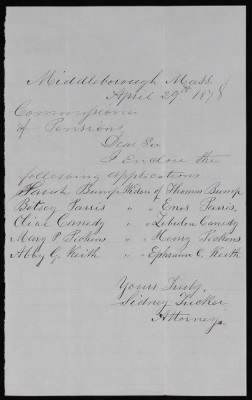 Middleborough Mass
April 29th 1878
Commissioner
of Pensions
Dear Sir
I Enclose the
following applications
Sarah Bump Widow of Thomas Bump
Betsey Parris " " Enos Parris
Clive Canedy " " Zebulon Canedy
Mary P. Pickens " " Henry Pickens
Abby G. Keith " " Ephraim C. Keith
Yours Truly,
Sidney Tucker
Attorney